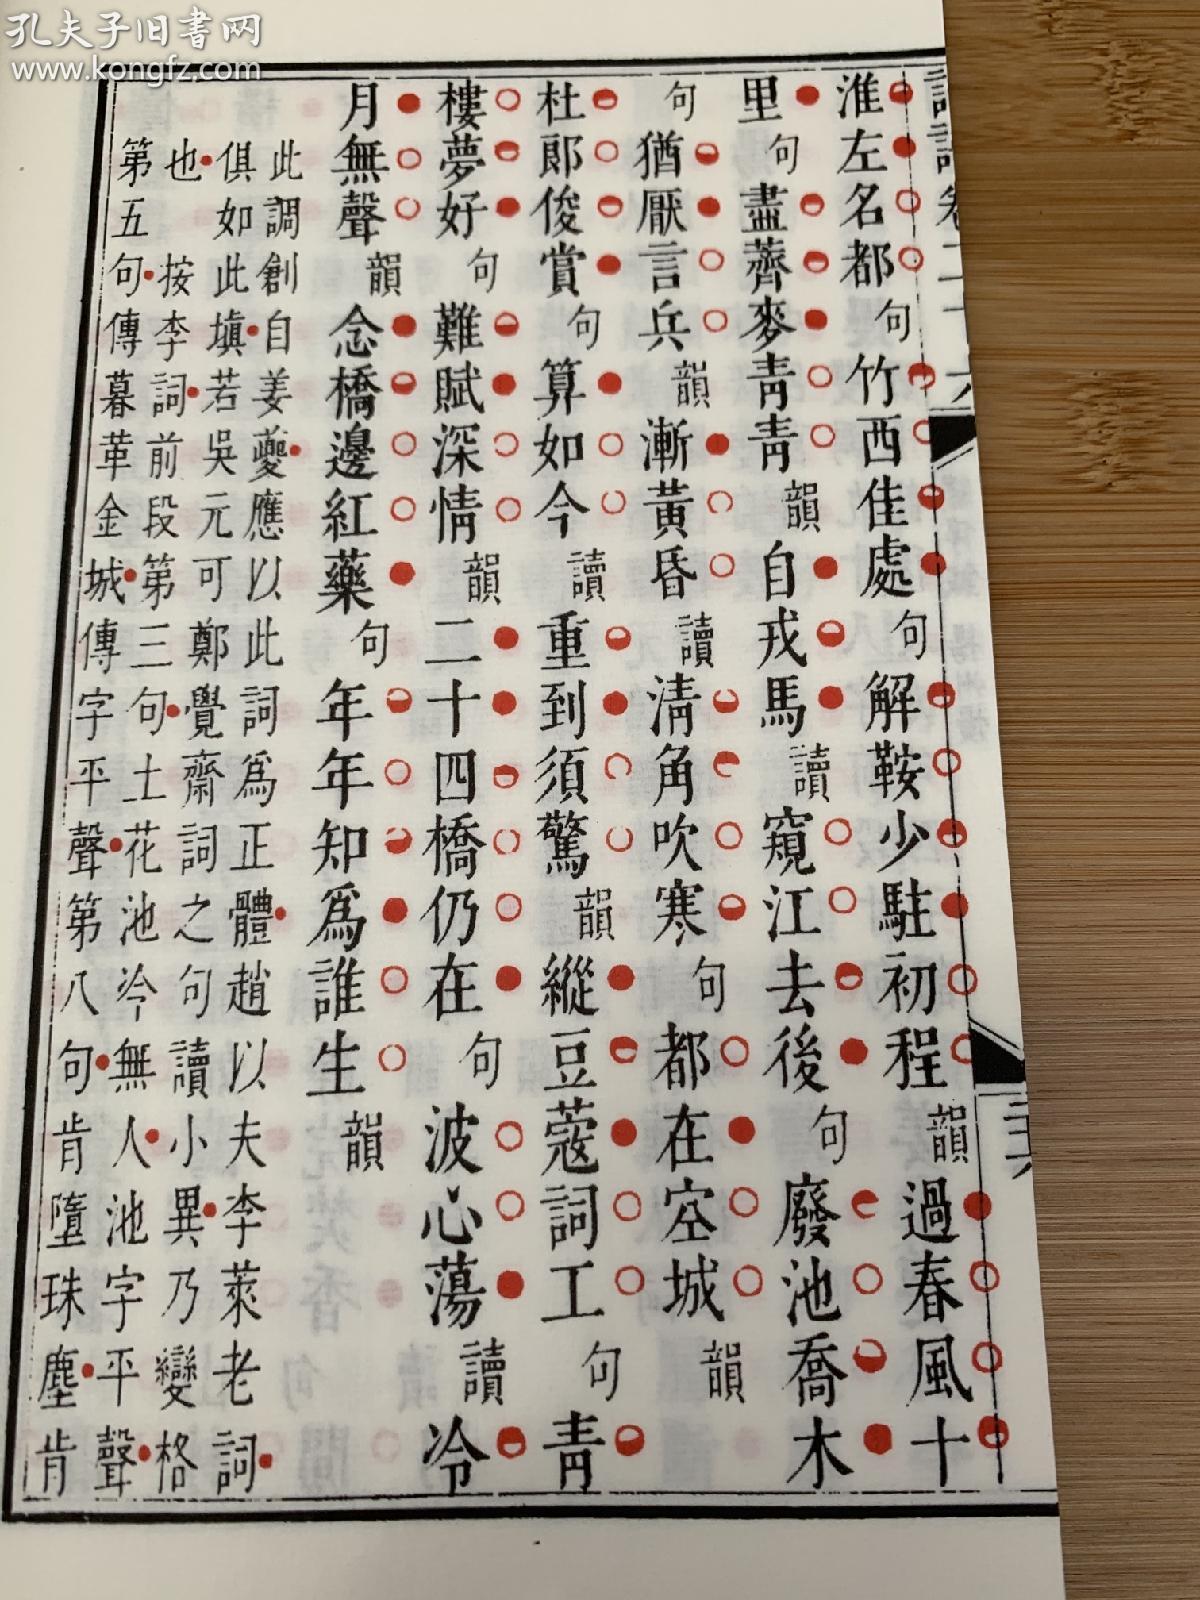 孔夫子旧書网
www.kongfz.com
淮左名都句竹西佳處句解鞍少駐初程韻過春風十
里句盡薺麥青青韻自戎馬讀窺江去後句廢池喬木
句猶厭言兵韻漸黃昏讀清角吹寒句都在空城韻
杜郎俊賞句算如今讀重到須驚韻縱豆蔻詞工句青
樓夢好句難賦深情韻二十四橋仍在句波心蕩讀冷
月無聲韻念橋邊紅藥句年年知爲誰生韻
此調創自姜夔應以此詞爲正體趙以夫李萊老詞
俱如此塡若吳元可鄭覺齋詞之句讀小異乃變格
也按李詞前段第三句土花池冷無人池字平聲
第五句傳暮革金城傳字平聲第八句肯墮珠塵肯